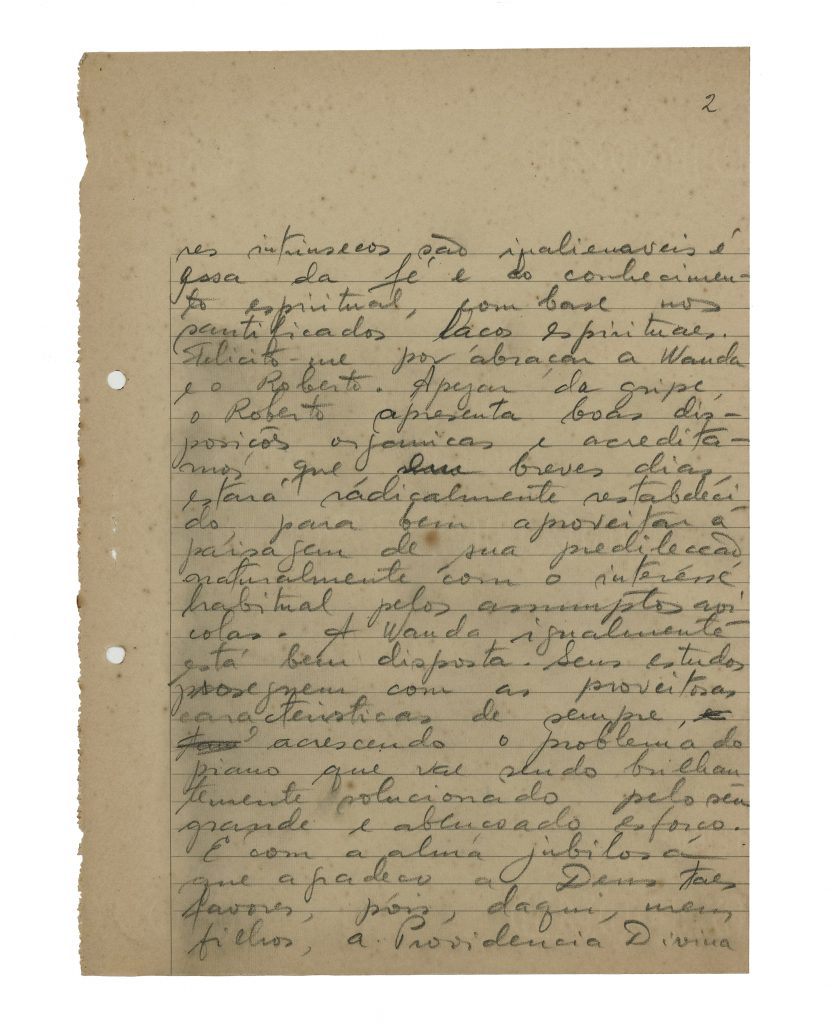 2
res intrinsecos são inalienaveis é
essa da fé e do conhecimen-
to espiritual, com base nos
santificados laços espirituaes.
Felicito-me por abraçar a Wanda
e o Roberto. Apezar da gripe,
o Roberto apresenta boas dis-
posições organicas e acredita-
mos que em breves dias
estará radicalmente restabeleci
do, para bem aproveitar a
paisagem de sua predilecção
naturalmente com o interesse
habitual pelos assumptos avi
colas. A Wanda, igualmente
está bem disposta. Seus estudos
proseguem com as proveitosas
caracteristicas de sempre,
acrescendo o problema do
piano que vae sendo brilhan
temente solucionado pelo seu
grande e abençoado esforço.
E com a alma jubilosa
que agradeço a Deus taes
favores, pois, daqui, meus
filhos, a Providencia Divina